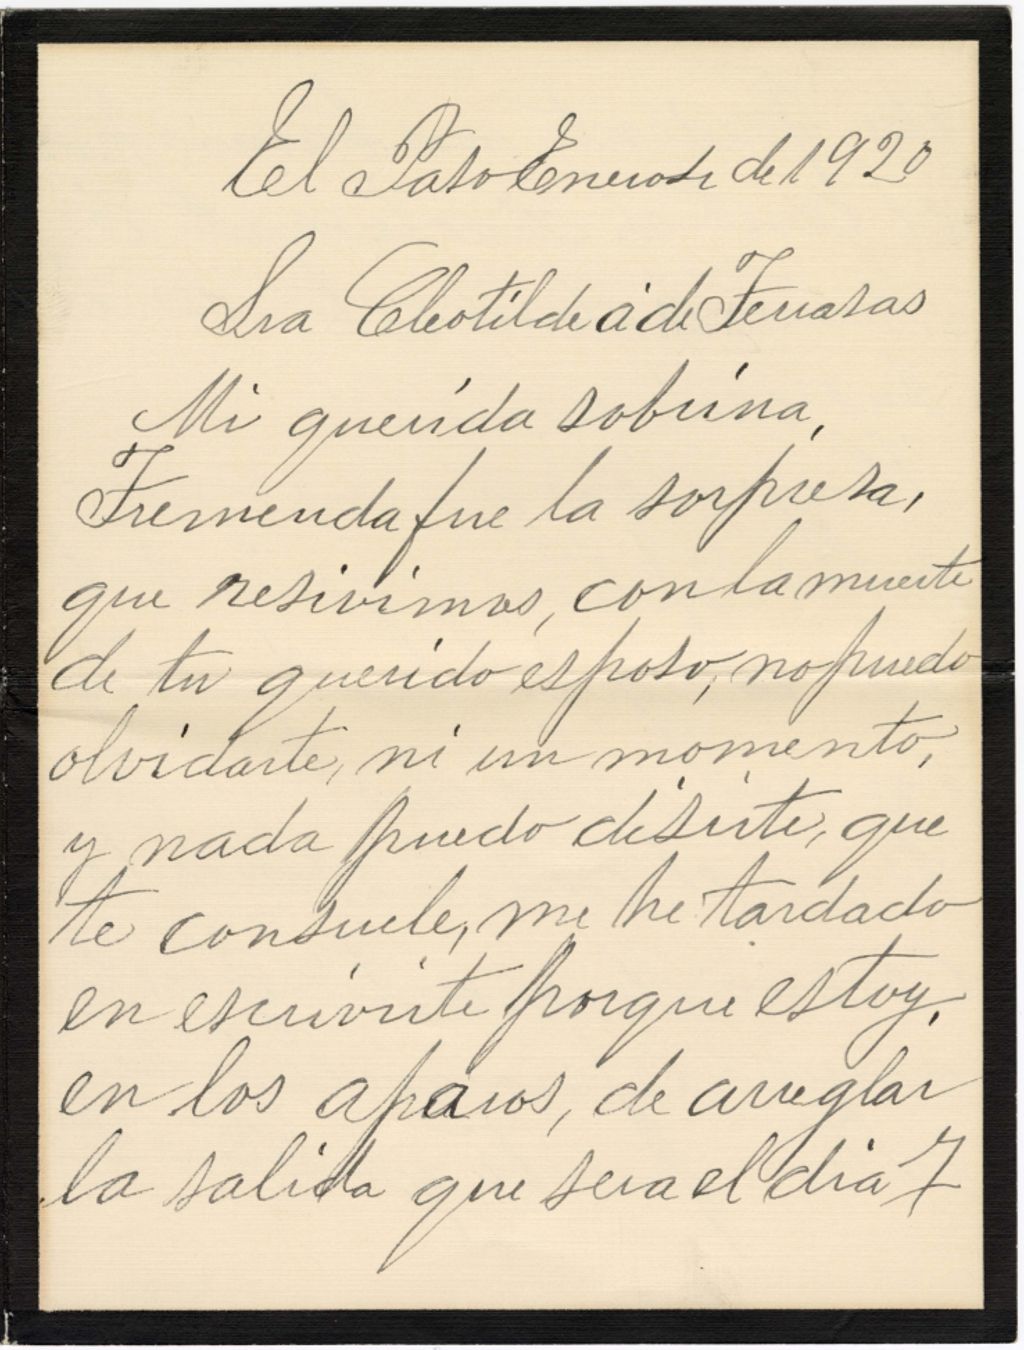 El Paso Enero de 1920
Sra Cleotilde a de Terrasas
Mi querida sobrina,
Tremenda fue la sorpresa,
que resivimos, con la muerte
de tu querido esposo, no puedo
olvidarte, ni un momento,
y nada puedo desirte, que
te consuele, me he tardado
en escrivirte porque estoy,
en los apuros, de arreglar
la salida que sera el dia 7